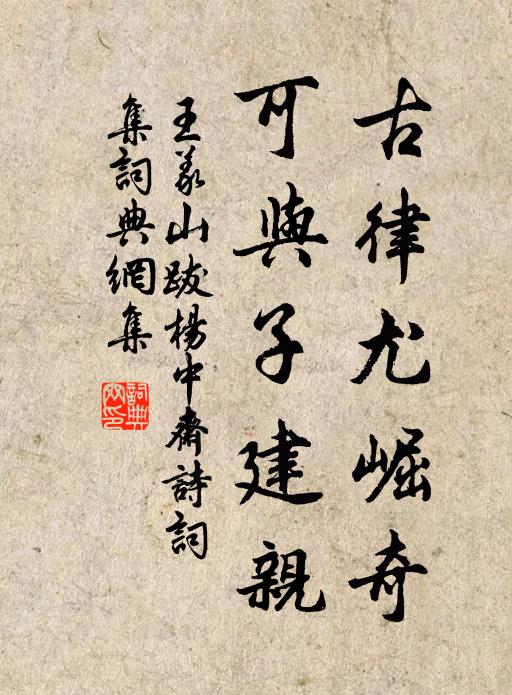 古律尤崛奇
可與子建親
王義山跋楊中齋詩詞
集詞典網集
詞典
网印